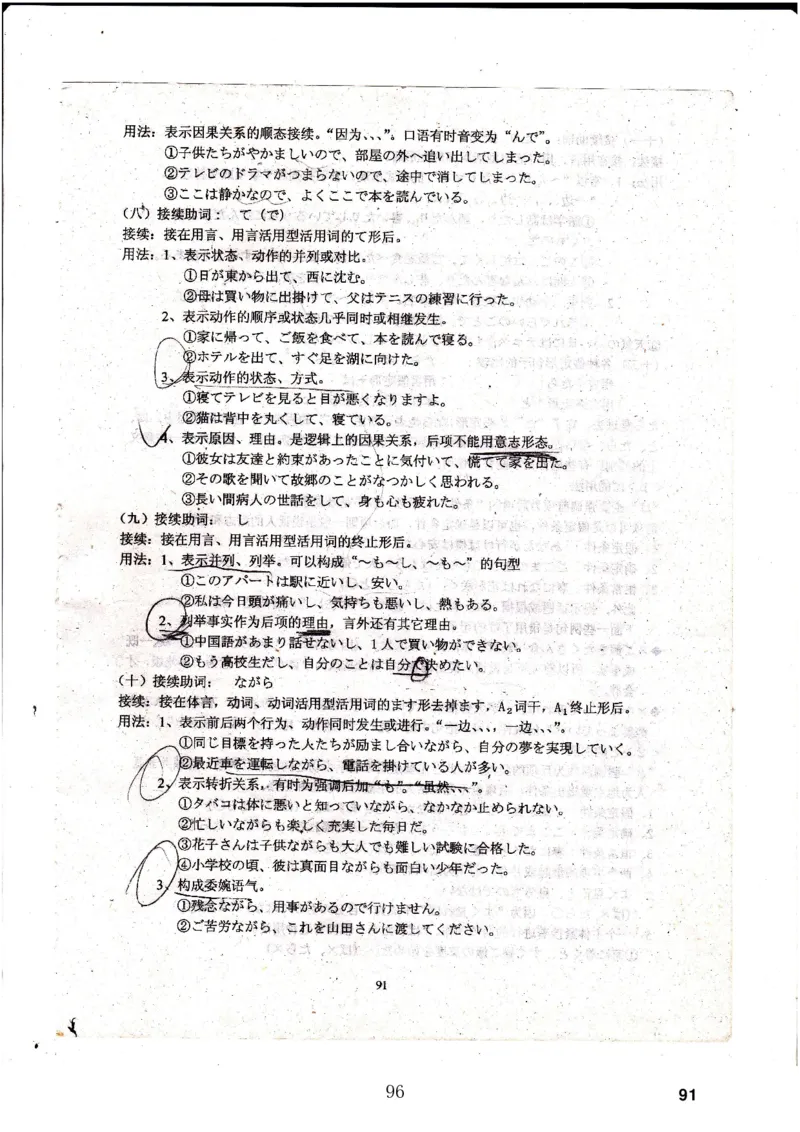 用法：表示因果关系的顺态接续。“因为、、、”。口语有时音变为“んで”。
①子供たちがやかましいので、部屋の外へ追い出してしまった。
②テレビのドラマがつまらないので、途中で消してしまった。
③ここは静かなので、よくここで本を読んでいる。
（八）接续助词：　て（で）
接续：接在用言、用言活用型活用词的て形后。
用法：1、表示状态、动作的并列或对比。
①日が東から出て、西に沈む。
②母は買い物に出掛けて、父はテニスの練習に行った。
2、表示动作的顺序或状态几乎同时或相继发生。
①家に帰って、ご飯を食べて、本を読んで寝る。
②ホテルを出て、すぐ足を湖に向けた。
3、表示动作的状态、方式。
①寝てテレビを見ると目が悪くなりますよ。
②猫は背中を丸くして、寝ている。
4、表示原因、理由。是逻辑上的因果关系，后项不能用意志形态。
①彼女は友達と約束があったことに気付いて、慌てて家を出た。
②その歌を聞いて故郷のことがなつかしく思われる。
③長い間病人の世話をして、身も心も疲れた。
（九）接续助词：　し
接续：接在用言、用言活用型活用词的终止形后。
用法：1、表示并列、列举。可以构成“～も～し、～も～”的句型
①このアパートは駅に近いし、安い。
②私は今日頭が痛いし、気持ちも悪いし、熱もある。
2、列举事实作为后项的理由，言外还有其它理由。
①中国語があまり話せないし、1人で買い物ができない。
②もう高校生だし、自分のことは自分で決めたい。
（十）接续助词：　ながら
接续：接在体言，动词、动词活用型活用词的ます形去掉ます，A₂词干，A₁终止形后。
用法：1、表示前后两个行为、动作同时发生或进行。“一边、、、，一边、、、”。
①同じ目標を持った人たちが励まし合いながら、自分の夢を実現していく。
②最近車を運転しながら、電話を掛けている人が多い。
2、表示转折关系，有时为强调后加“も”。“虽然、、、”。
①タバコは体に悪いと知っていながら、なかなか止められない。
②忙しいながらも楽しく充実した毎日だ。
③花子さんは子供ながらも大人でも難しい試験に合格した。
④小学校の頃、彼は真面目ながらも面白い少年だった。
3、构成委婉语气。
①残念ながら、用事があるので行けません。
②ご苦労ながら、これを山田さんに渡してください。
91
96
91